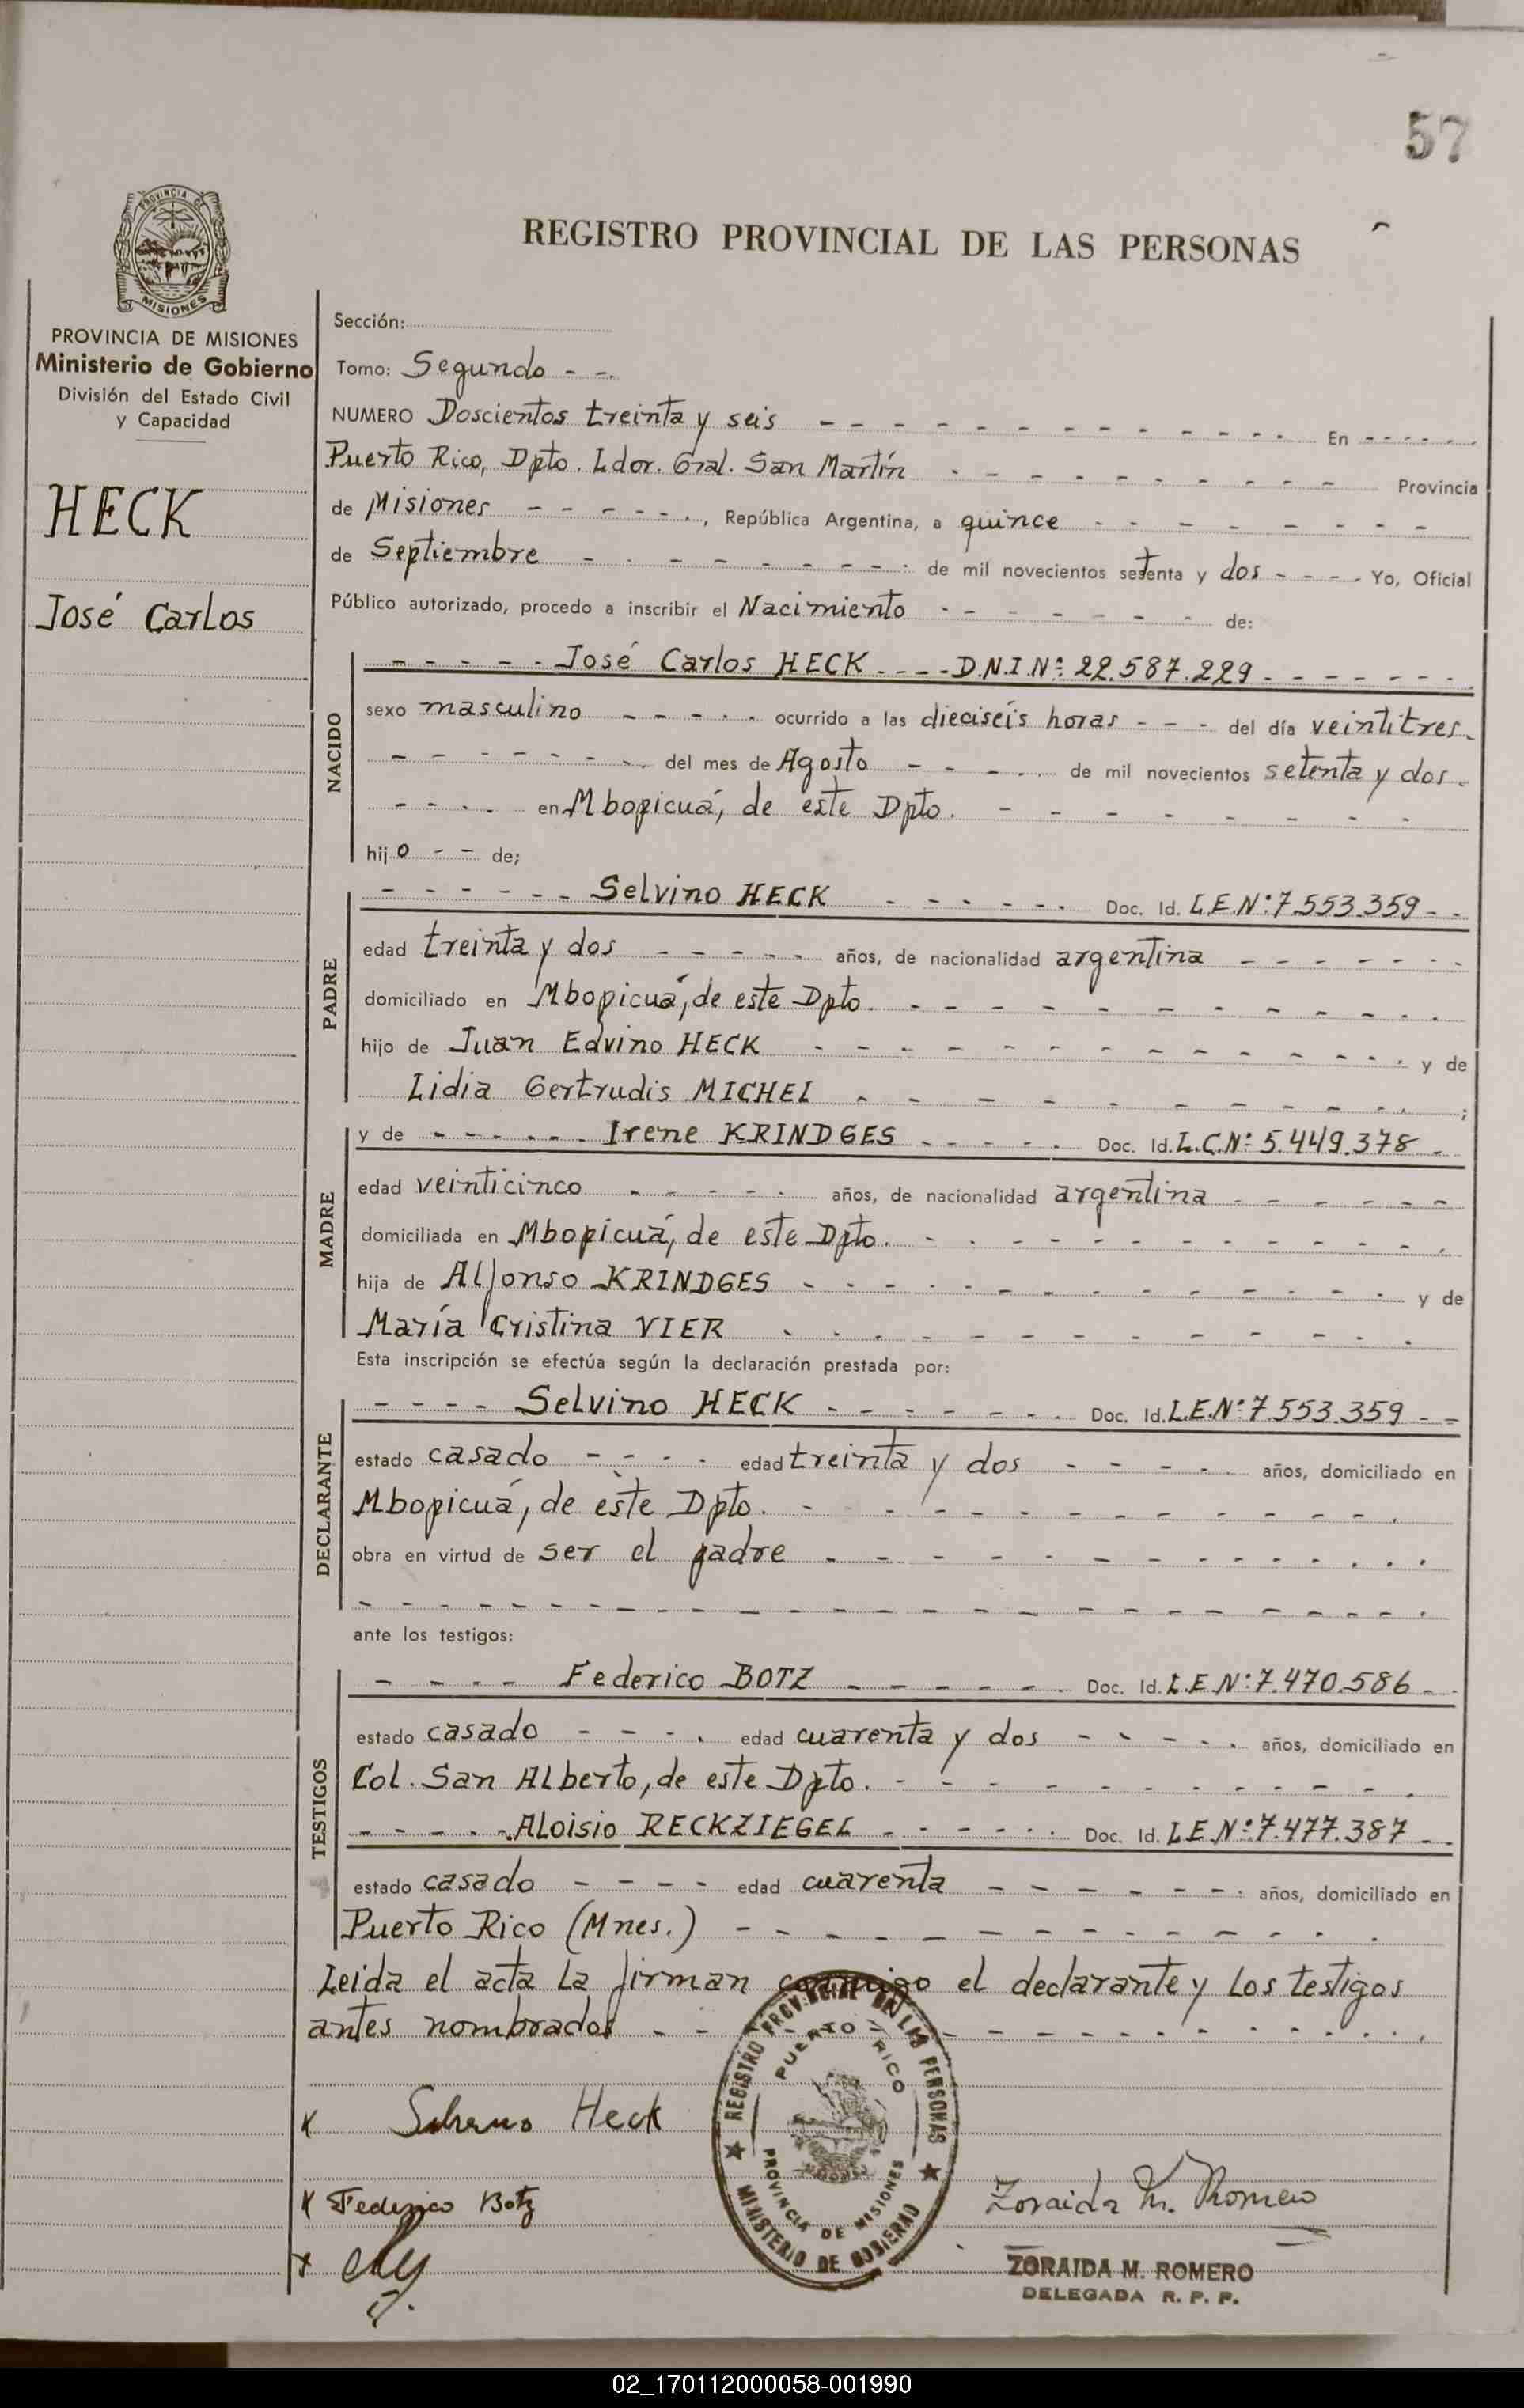 57
PROVINCIA DE
MISIONES
REGISTRO PROVINCIAL DE LAS PERSONAS
PROVINCIA DE MISIONES
Ministerio de Gobierno
División del Estado Civil
y Capacidad
HECK
José Carlos
Sección:
Tomo: Segundo - -
NUMERO Doscientos treinta y seis - - - En - - -
Puerto Rico, Dpto. Ldor. Gral. San Martín - - - Provincia
de Misiones - - -, República Argentina, a quince - - -
de Septiembre - - - de mil novecientos setenta y dos - - - Yo, Oficial
Público autorizado, procedo a inscribir el Nacimiento - - - de:
NACIDO
- - - José Carlos HECK - - - D.N.I.Nº: 22.587.229 - - -
sexo masculino - - - ocurrido a las dieciseis horas - - - del día veintitres -
- - - del mes de Agosto - - - de mil novecientos setenta y dos -
- - - en Mbopicuá, de este Dpto. - - -
hijo - - de;
PADRE
- - - Selvino HECK - - - Doc. Id. L.E.Nº: 7.553.359 - -
edad treinta y dos - - - años, de nacionalidad argentina - - -
domiciliado en Mbopicuá, de este Dpto. - - -
hijo de Juan Edvino HECK - - - y de
Lidia Gertrudis MICHEL - - - ;
MADRE
y de - - - Irene KRINDGES - - - Doc. Id. L.C.Nº: 5.449.378 -
edad veinticinco - - - años, de nacionalidad argentina - - -
domiciliada en Mbopicuá, de este Dpto. - - -
hija de Alfonso KRINDGES - - - y de
María Cristina VIER - - -
Esta inscripción se efectúa según la declaración prestada por:
DECLARANTE
- - - Selvino HECK - - - Doc. Id. L.E.Nº: 7.553.359 - -
estado casado - - - edad treinta y dos - - - años, domiciliado en
Mbopicuá, de este Dpto. - - -
obra en virtud de ser el padre - - -
ante los testigos:
TESTIGOS
- - - Federico BOTZ - - - Doc. Id. L.E.Nº: 7.470.586 - -
estado casado - - - edad cuarenta y dos - - - años, domiciliado en
Col. San Alberto, de este Dpto. - - -
- - - Aloisio RECKZIEGEL - - - Doc. Id. L.E.Nº: 7.477.387 - -
estado casado - - - edad cuarenta - - - años, domiciliado en
Puerto Rico (Mnes.) - - -
Leida el acta la firman conmigo el declarante y los testigos
antes nombrados - - -
REGISTRO PROVINCIAL DE LAS PERSONAS
PUERTO RICO
PROVINCIA DE MISIONES
MINISTERIO DE GOBIERNO
x Heck
x Federico Botz
x
Zoraida M. Romero
ZORAIDA M. ROMERO
DELEGADA R. P. P.
02_170112000058-001990